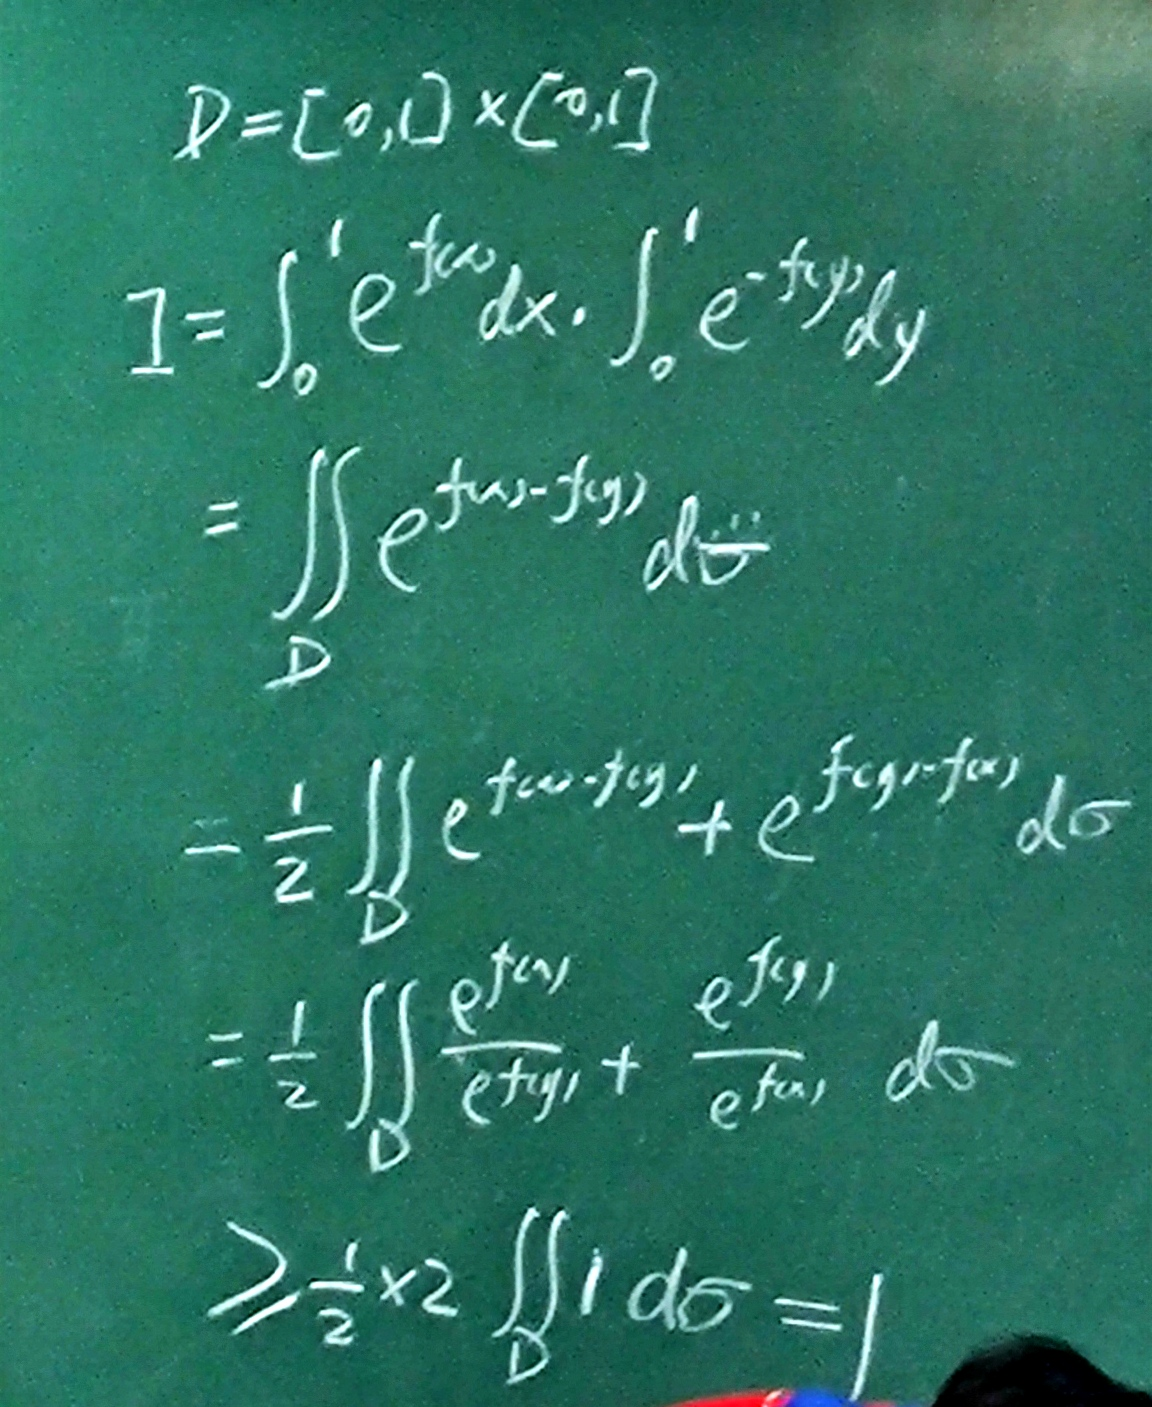 D=[0,1]×[0,1]
I=∫₀¹e^{f(x)}dx·∫₀¹e^{-f(y)}dy
=∬_D e^{f(x)-f(y)}dσ
=\frac{1}{2}∬_D e^{f(x)-f(y)}+e^{f(y)-f(x)}dσ
=\frac{1}{2}∬_D \frac{e^{f(x)}}{e^{f(y)}}+\frac{e^{f(y)}}{e^{f(x)}} dσ
≥\frac{1}{2}×2∬_D 1dσ=1